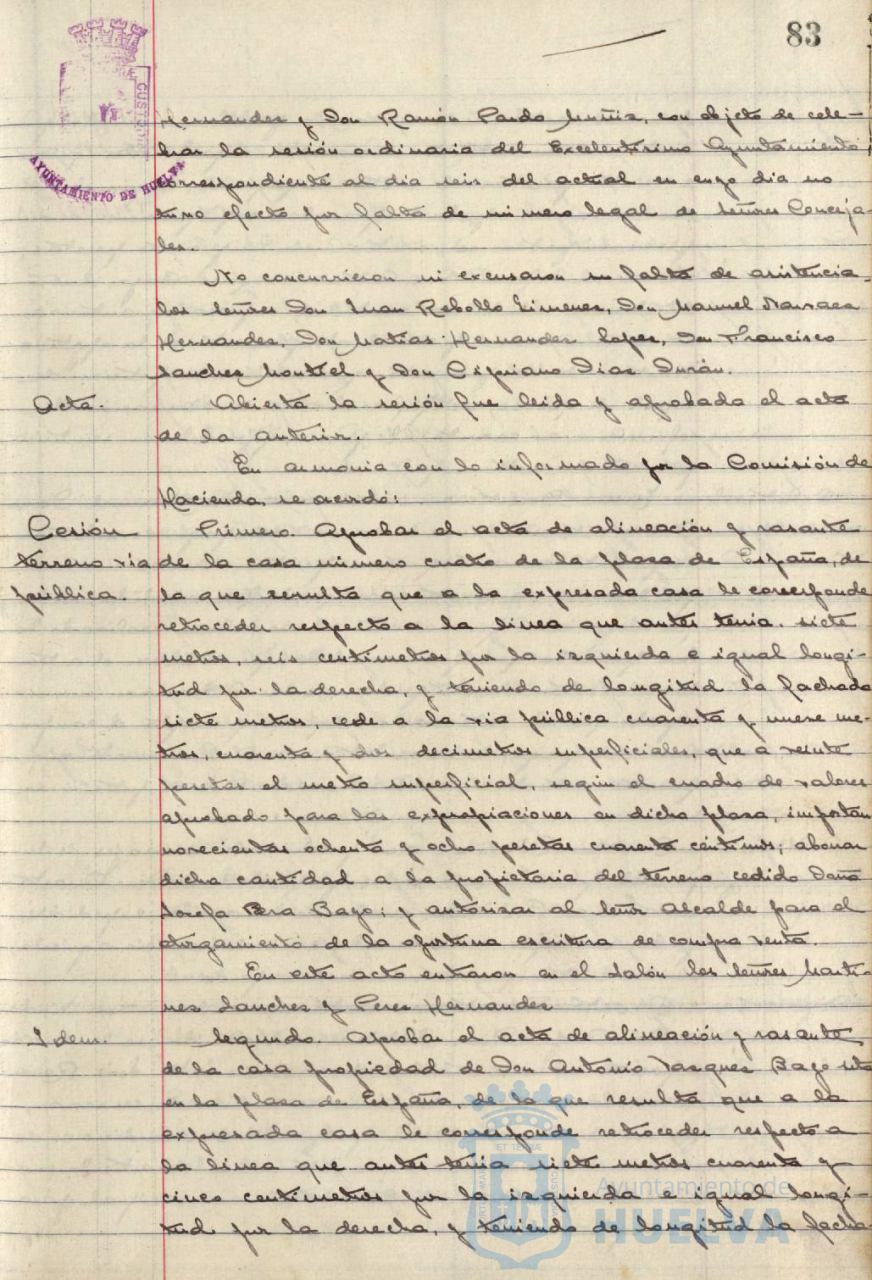 83
CUSTODIA
AYUNTAMIENTO DE HUELVA
Hernandez y Don Ramón Pardo Muñiz, con objeto de cele-
brar la sesión ordinaria del Excelentísimo Ayuntamiento
correspondiente al dia seis del actual en cuyo dia no
tuvo efecto por falta de número legal de Señores Conceja-
les.
No concurrieron ni excusaron su falta de asistencia
los Señores Don Juan Rebollo Jimenez, Don Manuel Narvaez
Hernandez, Don Matias Hernandez Lopez, Don Francisco
Sanchez Montiel y Don Cipriano Diaz Durán.
Acta.
Abierta la sesión fue leida y aprobada el acta
de la anterior.
En armonia con lo informado por la Comisión de
Hacienda, se acordó:
Cesión
terreno via
pública.
Primero. Aprobar el acta de alineación y rasante
de la casa número cuatro de la plaza de España, de
la que resulta que a la expresada casa le corresponde
retroceder respecto a la linea que antes tenia, siete
metros, seis centimetros por la izquierda e igual longi-
tud por la derecha, y teniendo de longitud la fachada
siete metros, cede a la via pública cuarenta y nueve me-
tros, cuarenta y dos decimetros superficiales, que a veinte
pesetas el metro superficial, según el cuadro de valores
aprobado para las expropiaciones en dicha plaza, importan
novecientas ochenta y ocho pesetas cuarenta céntimos; abonar
dicha cantidad a la propietaria del terreno cedido Doña
Josefa Bazo; y autorizar al Señor Alcalde para el
otorgamiento de la oportuna escritura de compra venta.
En este acto entraron en el Salón los Señores Marti-
nez Sanchez y Perez Hernandez
Idem.
Segundo. Aprobar el acta de alineación y rasante
de la casa propiedad de Don Antonio Vazquez Bazo sita
en la plaza de España, de la que resulta que a la
expresada casa le corresponde retroceder respecto a
la linea que antes tenia siete metros cuarenta y
cinco centimetros por la izquierda e igual longi-
tud por la derecha, y teniendo de longitud la facha-
Ayuntamiento de
HUELVA